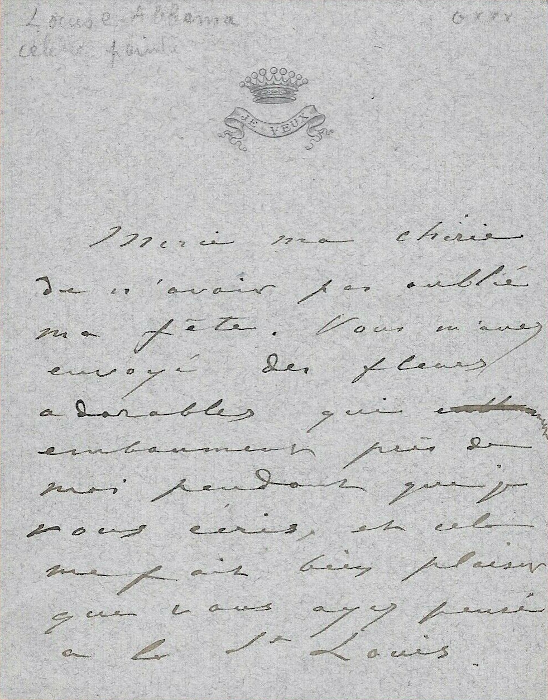 Louise Abbema
célèbre peintre
JE VEUX
Merci ma chérie
de n'avoir pas oublié
ma fête. Vous m'avez
envoyé des fleurs
adorables qui
embaument près de
moi pendant que je
vous écris, et cela
me fait bien plaisir
que vous ayez pensé
a la St Louis